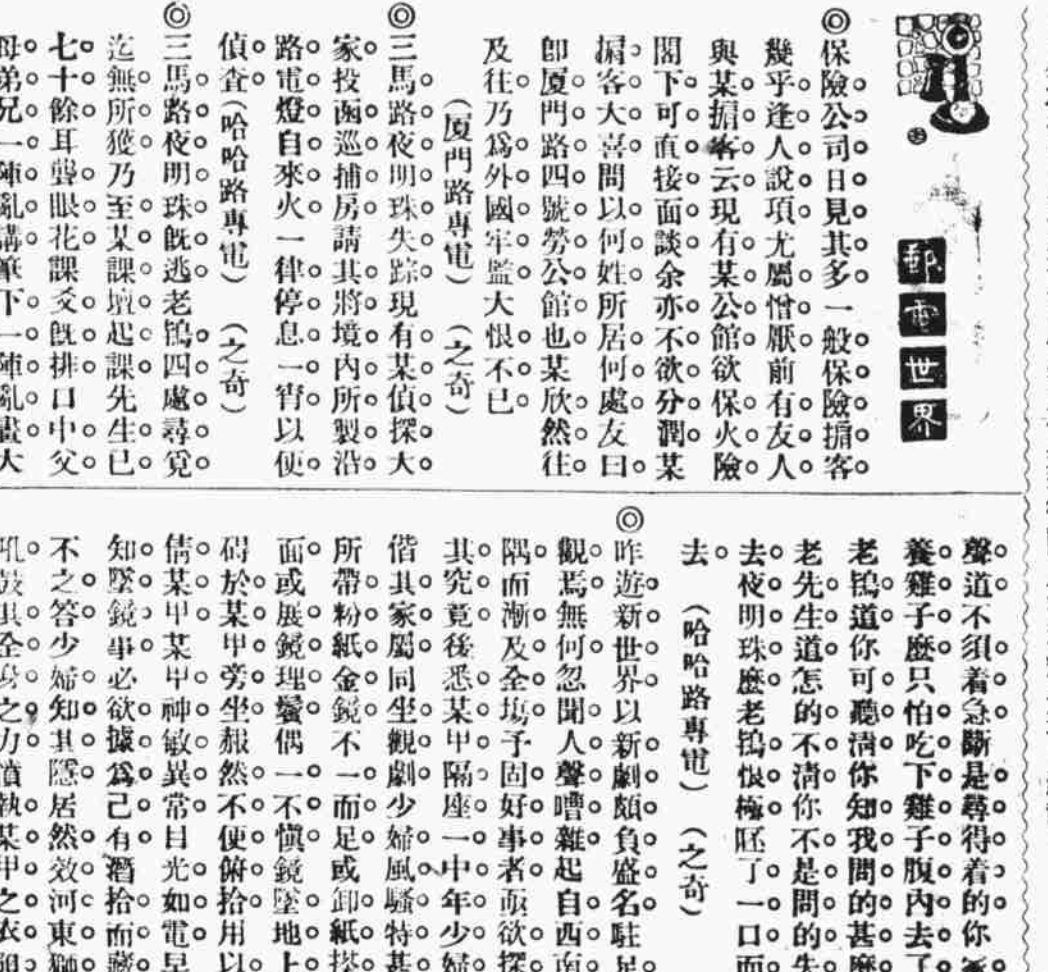 郵電世界
◎保險公司。日見其多。一般保險掮客。
幾乎逢人說項。尤屬憎厭。前有友人
與某掮客云。現有某公館欲保火險。
閣下可直接面談。余亦不欲分潤。某
掮客大喜。問以何姓。所居何處。友曰。
卽厦門路四號勞公館也。某欣然往。
及往。乃爲外國牢監。大恨不已。
(厦門路專電) (之奇)
◎三馬路夜明珠失踪。現有某偵探大
家。投函巡捕房。請其將境內所製沿
路電燈自來火。一律停息一宵。以便
偵查。(哈哈路專電) (之奇)
◎三馬路夜明珠旣逃。老鴇四處尋覓。
迄無所獲。乃至某課壇起課。先生已
七十餘。耳聾眼花。課爻旣排。口中父
母弟兄一陣亂講。筆下一陣亂畫。大
聲道。不須着急。斷是尋得着的。你
養雞子麽。只怕吃下雞子腹內去了。
老鴇道。你可聽淸。你知我問的甚麽。
老先生道。怎的不淸。你不是問的失
去夜明珠麽。老鴇恨極。呸了一口而
去。 (哈哈路專電) (之奇)
◎昨遊新世界。以新劇頗負盛名。駐足
觀焉。無何忽聞人聲嘈雜。起自西南
隅。而漸及全塲。予固好事者。亟欲探
其究竟。後悉某甲隔座。一中年少婦。
偕其家屬同坐觀劇。少婦風騷特甚。
所帶粉紙金鏡。不一而足。或卸紙搽
面。或展鏡理鬢。偶一不愼。鏡墜地上。
碍於某甲旁坐。赧然不便俯拾。用以
倩某甲。某甲神敏異常。目光如電。早
知墜鏡事。必欲據爲己有。潛拾而藏。
不之答。少婦知其隱。居然效河東獅
吼。鼓其全身之力。憤執某甲之衣